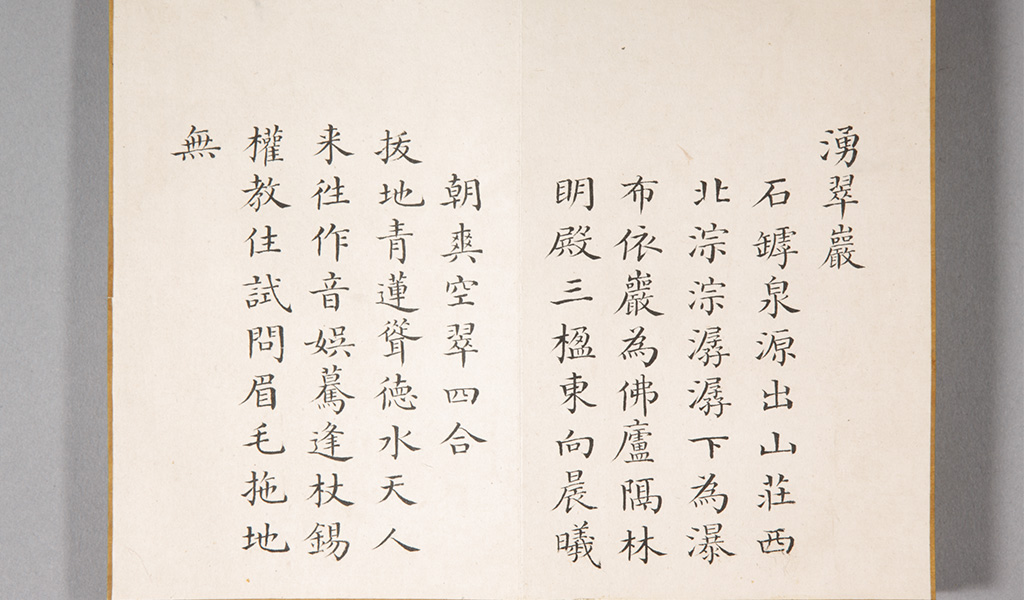 湧翠巖
石罅泉源出山莊西
北淙淙潺潺下為瀑
布依巖為佛廬隔林
眀殿三楹東向晨曦
朝爽空翠四合
拔地青蓮聳德水天人
来徃作音娛驀逢杖錫
權教住試問眉毛拖地
無